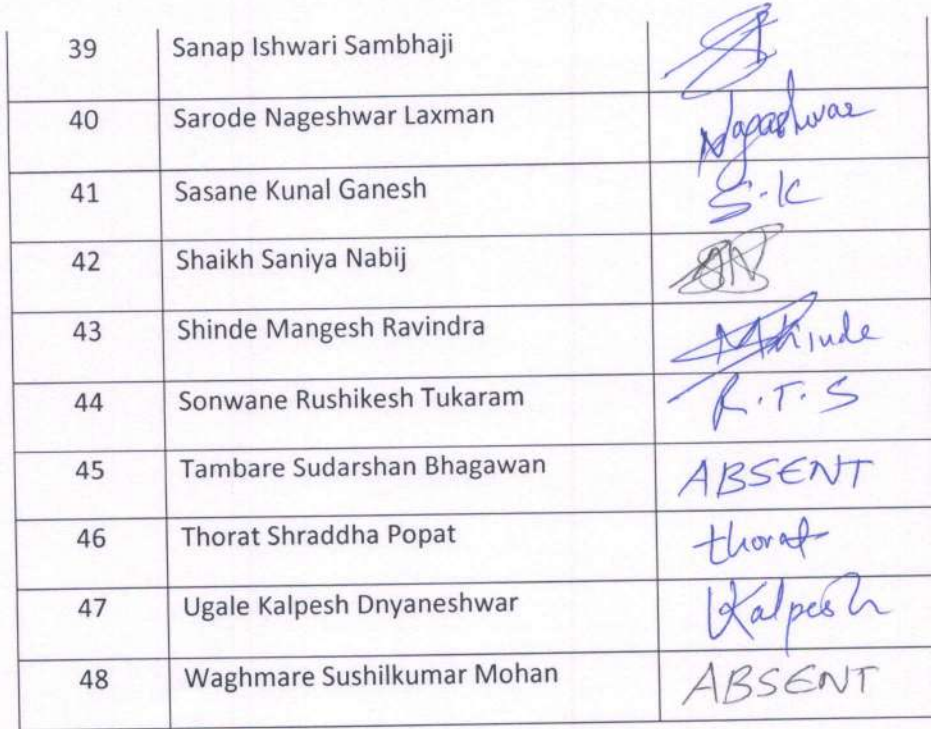 39 Sanap Ishwari Sambhaji
40 Sarode Nageshwar Laxman Nagashwar
41 Sasane Kunal Ganesh S.K
42 Shaikh Saniya Nabij
43 Shinde Mangesh Ravindra
44 Sonwane Rushikesh Tukaram R.T.S
45 Tambare Sudarshan Bhagawan ABSENT
46 Thorat Shraddha Popat thorat
47 Ugale Kalpesh Dnyaneshwar Kalpesh
48 Waghmare Sushilkumar Mohan ABSENT